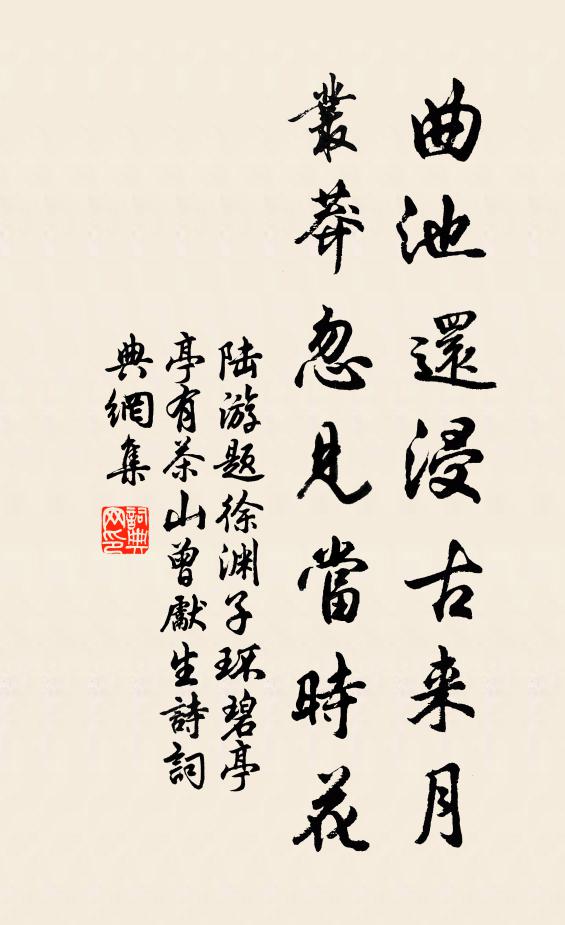 曲池還浸古来月
叢莽忽見當時花
陆游题徐渊子环碧亭
亭有茶山曾獻生詩詞
典網集
詞典網印